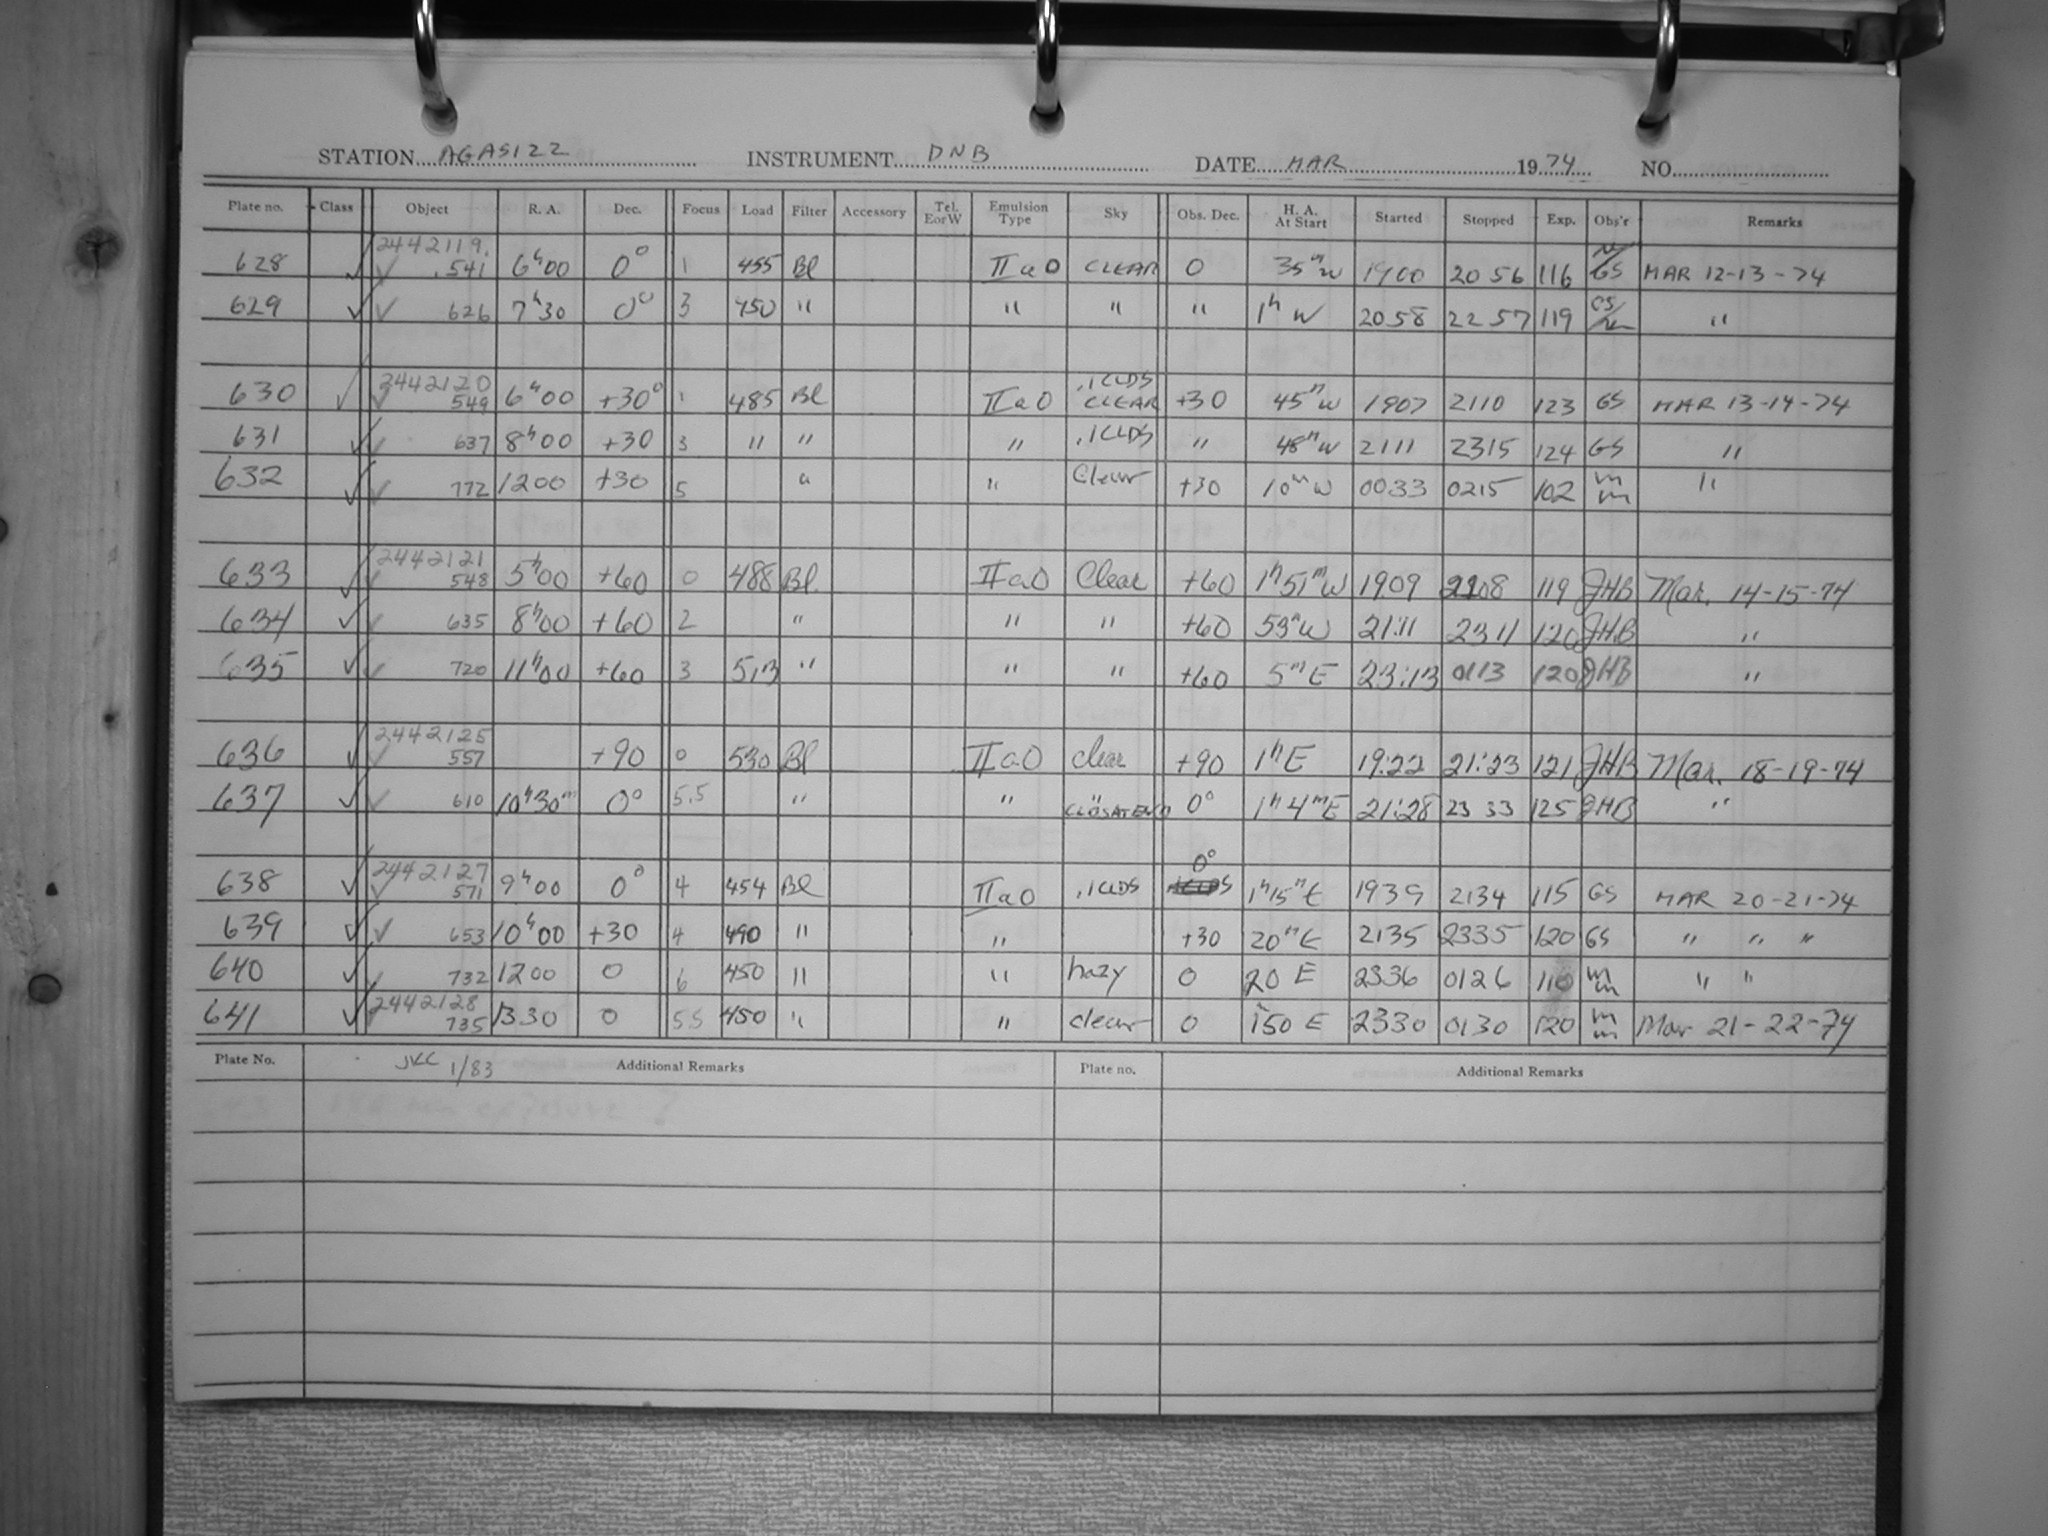 STATION AGASIZZ INSTRUMENT DNB DATE MAR 1974 NO.
Plate no. Class Object R. A. Dec. Focus Load Filter Accessory Tel. E or W Emulsion Type Sky Obs. Dec. H. A. At Start Started Stopped Exp. Obs'r Remarks
628 ✓ 2442119. ✓ .541 6h00 0° 1 455 Bl IIaO CLEAR 0 35m W 1900 2056 116 GS MAR 12-13-74
629 ✓ ✓ 626 7h30 0° 3 450 " " " " 1h W 2058 2257 119 GS "
630 ✓ 2442120 ✓ 549 6h00 +30° 1 485 Bl IIaO .1CLDS CLEAR +30 45m W 1907 2110 123 GS MAR 13-14-74
631 ✓ ✓ 637 8h00 +30 3 " " " .1CLDS " 48m W 2111 2315 124 GS "
632 ✓ ✓ 772 1200 +30 5 " " Clear +30 10m W 0033 0215 102 mm "
633 ✓ 2442121 ✓ 548 5h00 +60 0 488 Bl IIaO Clear +60 1h51m W 1909 2108 119 JHB Mar. 14-15-74
634 ✓ ✓ 635 8h00 +60 2 " " " +60 53m W 21:11 2311 120 JHB "
635 ✓ ✓ 720 11h00 +60 3 513 " " " +60 5m E 23:13 0113 120 JHB "
636 ✓ 2442125 ✓ 557 +90 0 530 Bl IIaO clear +90 1h E 19:22 21:23 121 JHB Mar. 18-19-74
637 ✓ ✓ 610 10h30m 0° 5.5 " " " 0° 1h4m E 21:28 2333 125 JHB "
638 ✓ 2442127 ✓ 571 9h00 0° 4 454 Bl IIaO .1CLDS 0° 1h15m E 1939 2134 115 GS MAR 20-21-74
639 ✓ ✓ 653 10h00 +30 4 490 " " +30 20m E 2135 2335 120 GS " " "
640 ✓ ✓ 732 1200 0 6 450 " " hazy 0 20 E 2336 0126 110 mm " "
641 ✓ 2442128 735 1330 0 5.5 450 " " clear 0 150 E 2330 0130 120 mm Mar 21-22-74
Plate No. JKC 1/83 Additional Remarks Plate no. Additional Remarks